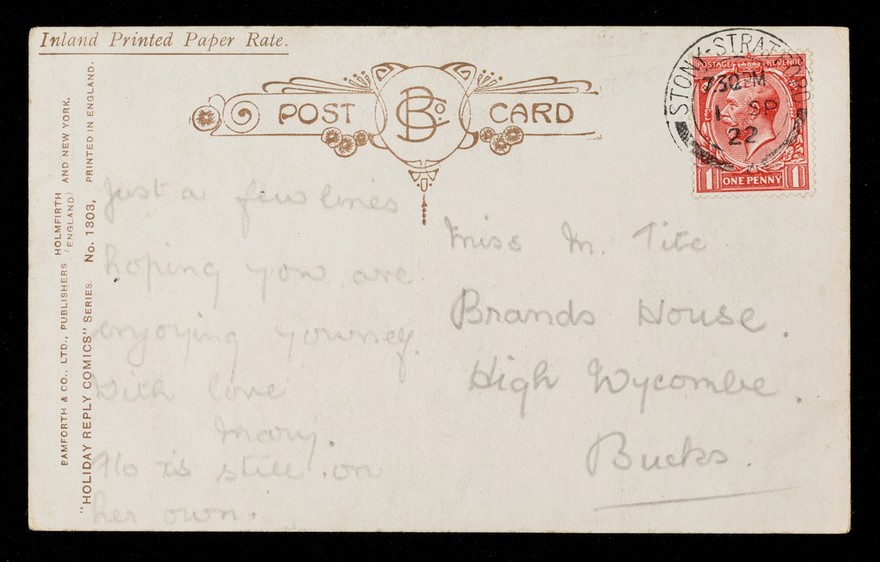 Inland Printed Paper Rate.
POST BCo. CARD
STONY-STRATFORD
7 30 PM
1 SP
22
POSTAGE REVENUE
1 ONE PENNY 1
BAMFORTH & CO., LTD., PUBLISHERS HOLMFIRTH (ENGLAND) AND NEW YORK.
"HOLIDAY REPLY COMICS" SERIES No. 1303, PRINTED IN ENGLAND.
Just a few lines
hoping you are
enjoying
With love
Mary.
Flo is still on
her own.
Miss M. Tite
Brands House.
High Wycombe.
Bucks.